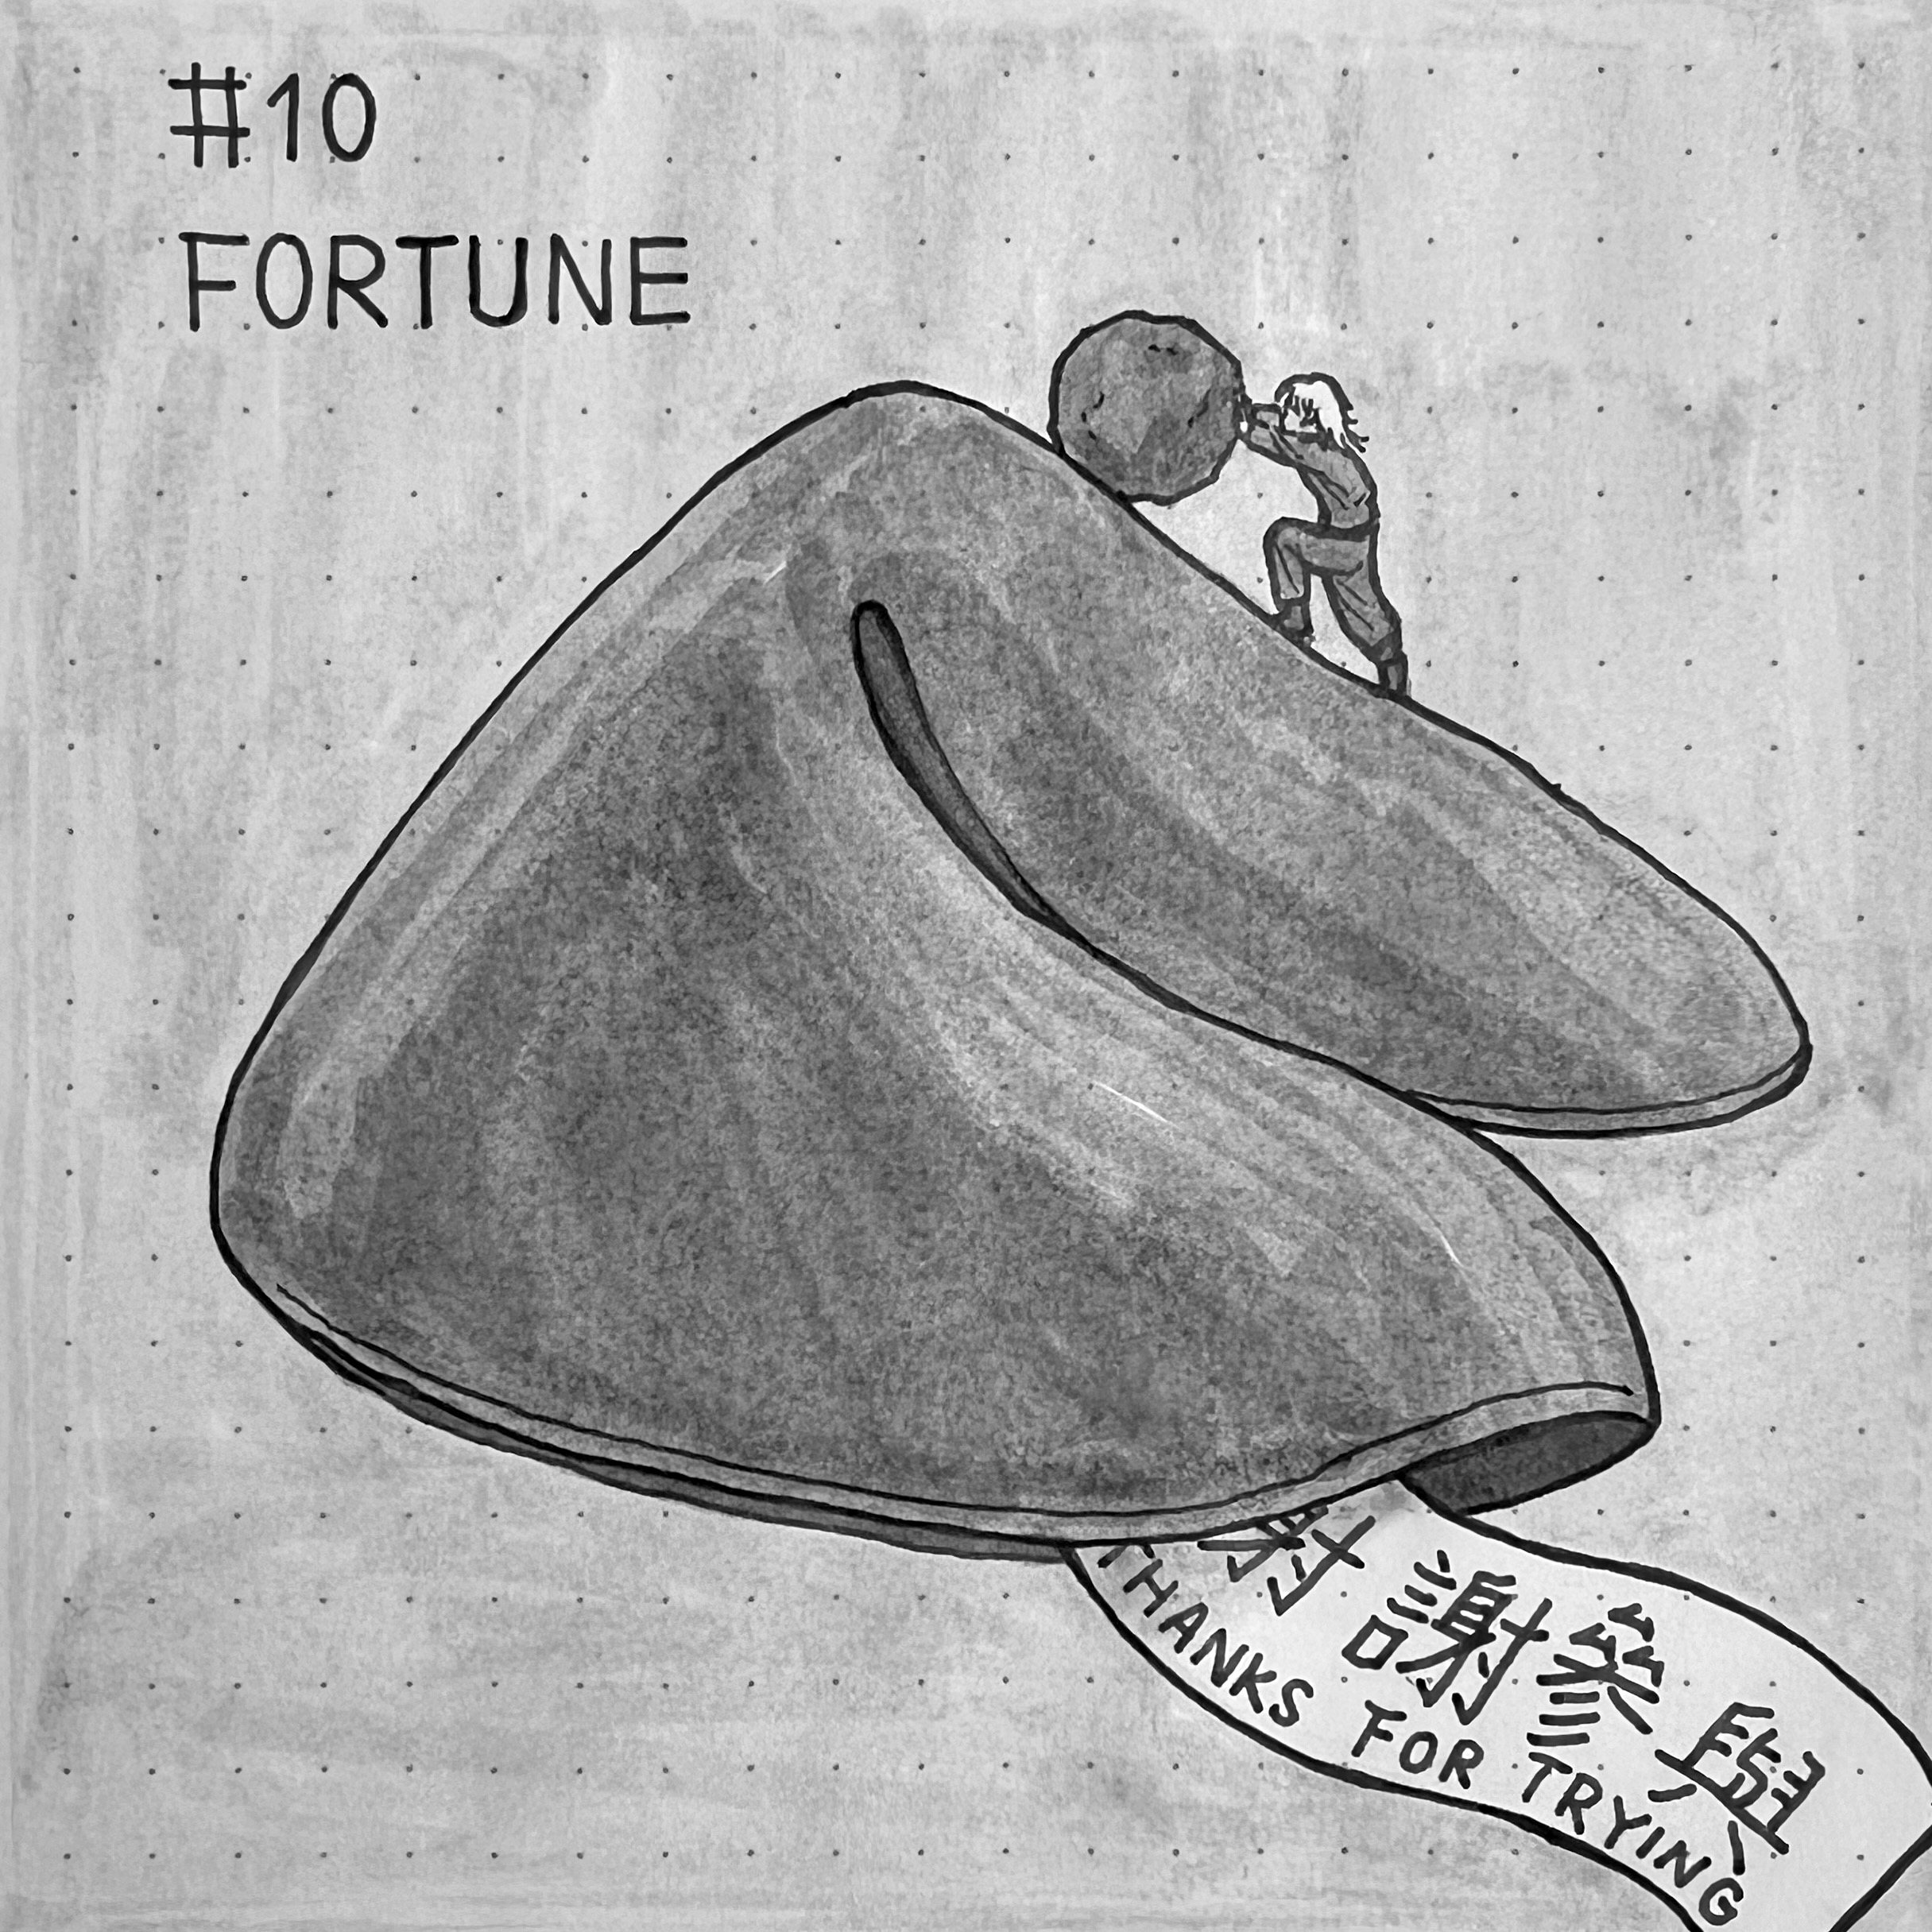 #10
FORTUNE
謝謝參與
THANKS FOR TRYING